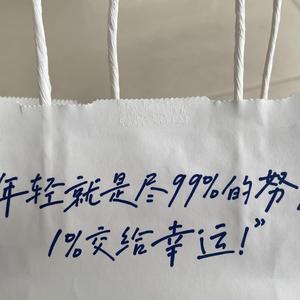 年轻就是尽99%的努
1%交给幸运!”